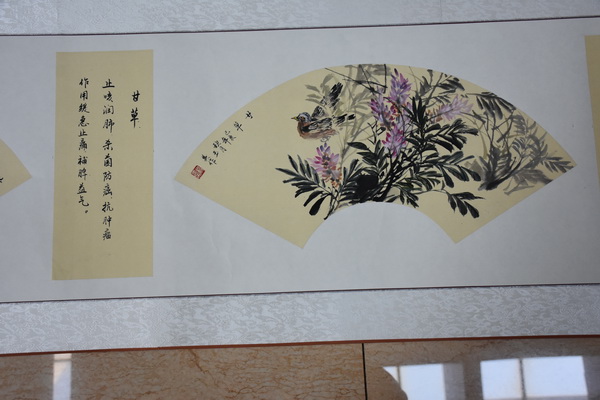 甘草
止咳润肺 杀菌防癌抗肿瘤
作用缓急止痛补脾益气。
甘草